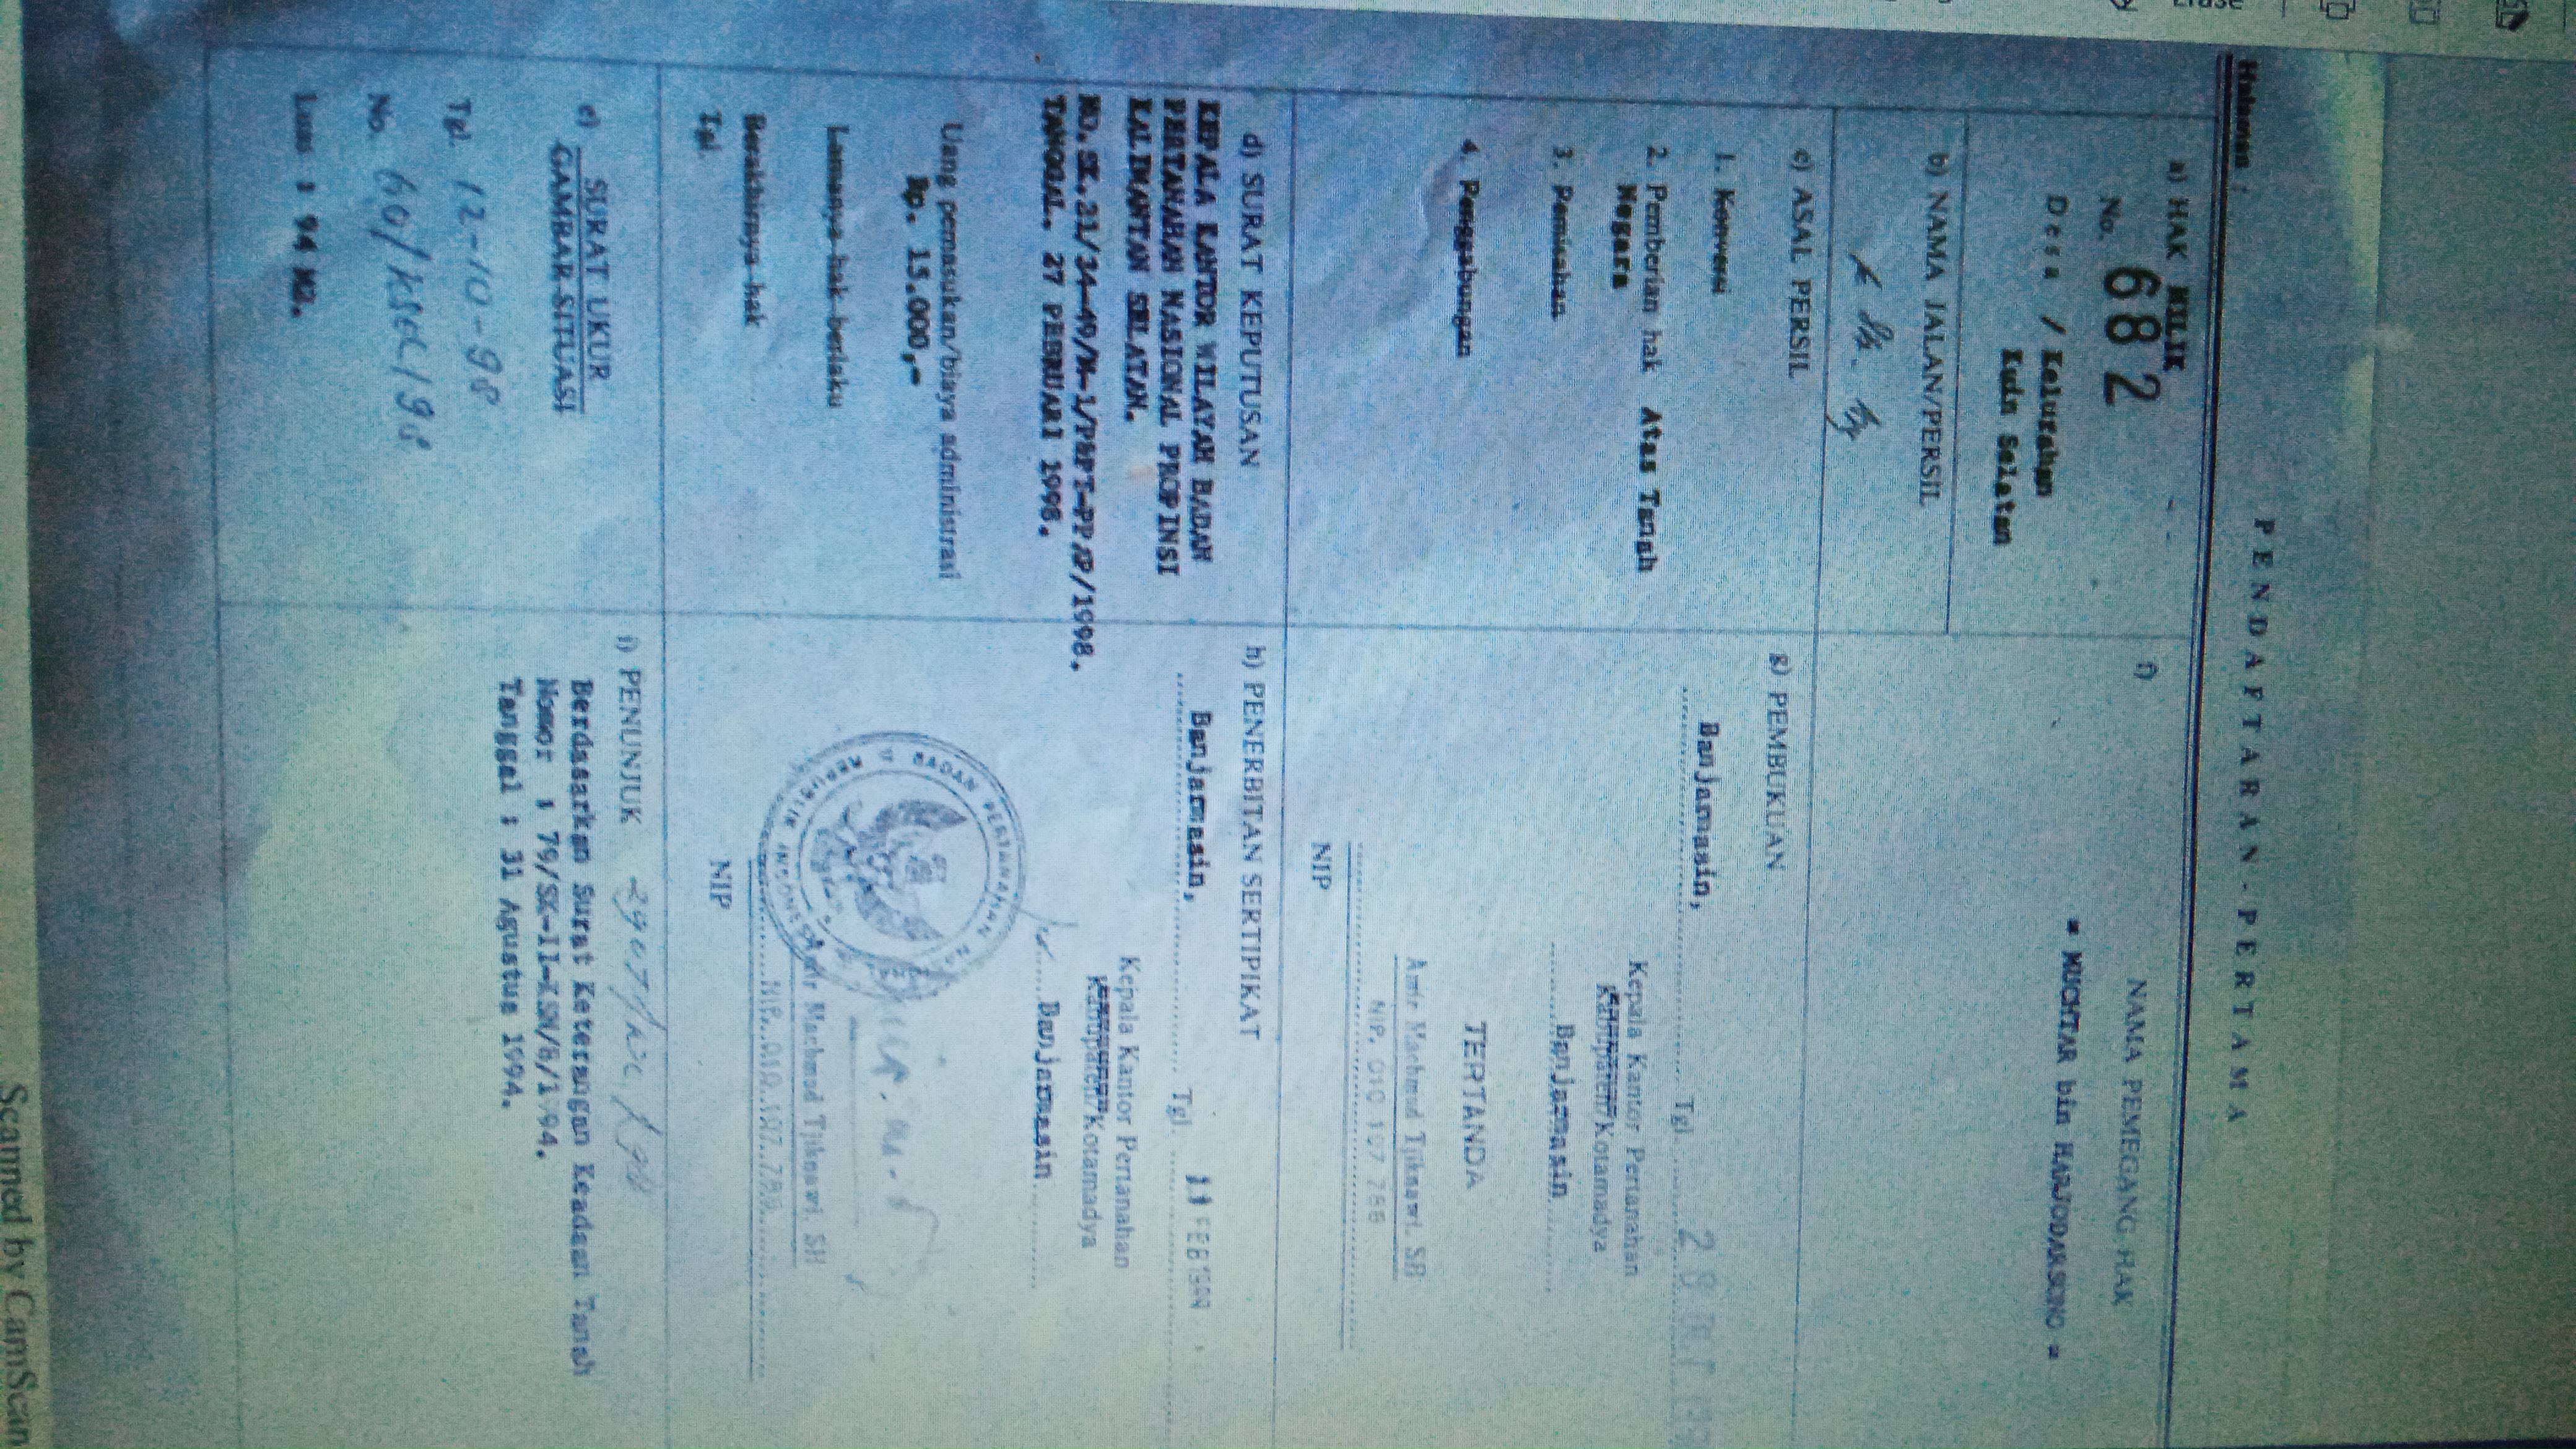 Halaman :
PENDAFTARAN-PERTAMA
a) HAK MILIK
No. 682
Desa / Kelurahan
Kuin Selatan
b) NAMA JALAN/PERSIL
c) ASAL PERSIL
1. Konversi
2. Pemberian hak Atas Tanah
Negara
3. Pemisahan
4. Penggabungan
d) SURAT KEPUTUSAN
KEPALA KANTOR WILAYAH BADAN
PERTANAHAN NASIONAL PROPINSI
KALIMANTAN SELATAN.
TANGGAL. 27 PEBRUARI 1998.
Uang pemasukan/biaya administrasi
Rp. 15.000,-
Lamanya hak berlaku
Berakhirnya hak
Tgl.
e) SURAT UKUR
GAMBAR SITUASI
Tgl. 12-10-98
No. 60/
Luas : 94 M2.
f) NAMA PEMEGANG HAK
= MUCHTAR bin HARJODARSONO =
g) PEMBUKUAN
Banjarmasin, Tgl.
Kepala Kantor Pertanahan
Kabupaten/Kotamadya
Banjarmasin
TERTANDA
Amir Machmud Tjiknawi. SH
NIP. 010 197 788
NIP
h) PENERBITAN SERTIPIKAT
Banjarmasin, Tgl. 11 FEB 1999
Kepala Kantor Pertanahan
Kabupaten/Kotamadya
Banjarmasin
BADAN PERTANAHAN
REPUBLIK INDONESIA
Amir Machmud Tjiknawi. SH
NIP. 010 197 788
NIP
i) PENUNJUK
Berdasarkan Surat Keterangan Keadaan Tanah
Nomor :
Tanggal : 31 Agustus 1994.
Scanned by CamScan